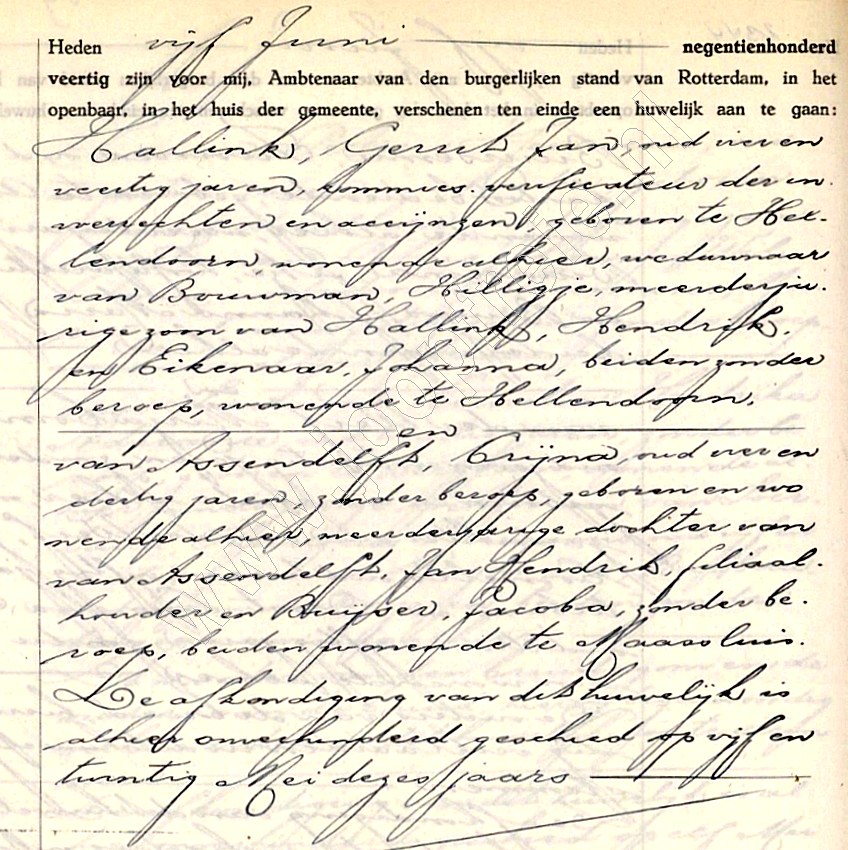 Heden vijf Juni negentienhonderd
veertig zijn voor mij, Ambtenaar van den burgerlijken stand van Rotterdam, in het
openbaar, in het huis der gemeente, verschenen ten einde een huwelijk aan te gaan:
Hallink, Gerrit Jan, oud vier en
veertig jaren, kommies-verificateur der in-
voerrechten en accijnzen, geboren te Hel-
lendoorn, wonende alhier, weduwnaar
van Bouwman, Hilligje, meerderja-
rige zoon van Hallink, Hendrik,
en Eikenaar, Johanna, beiden zonder
beroep, wonende te Hellendoorn,
en
van Assendelft, Crijna, oud vier en
dertig jaren, zonder beroep, geboren en wo
nende alhier, meerderjarige dochter van
van Assendelft, Jan Hendrik, filiaal-
houder en Buijser, Jacoba, zonder be-
roep, beiden wonende te Maassluis.
De afkondiging van dit huwelijk is
alhier onverhinderd geschied op vijf en
twintig Mei dezes jaars
www.joomlefie.nl